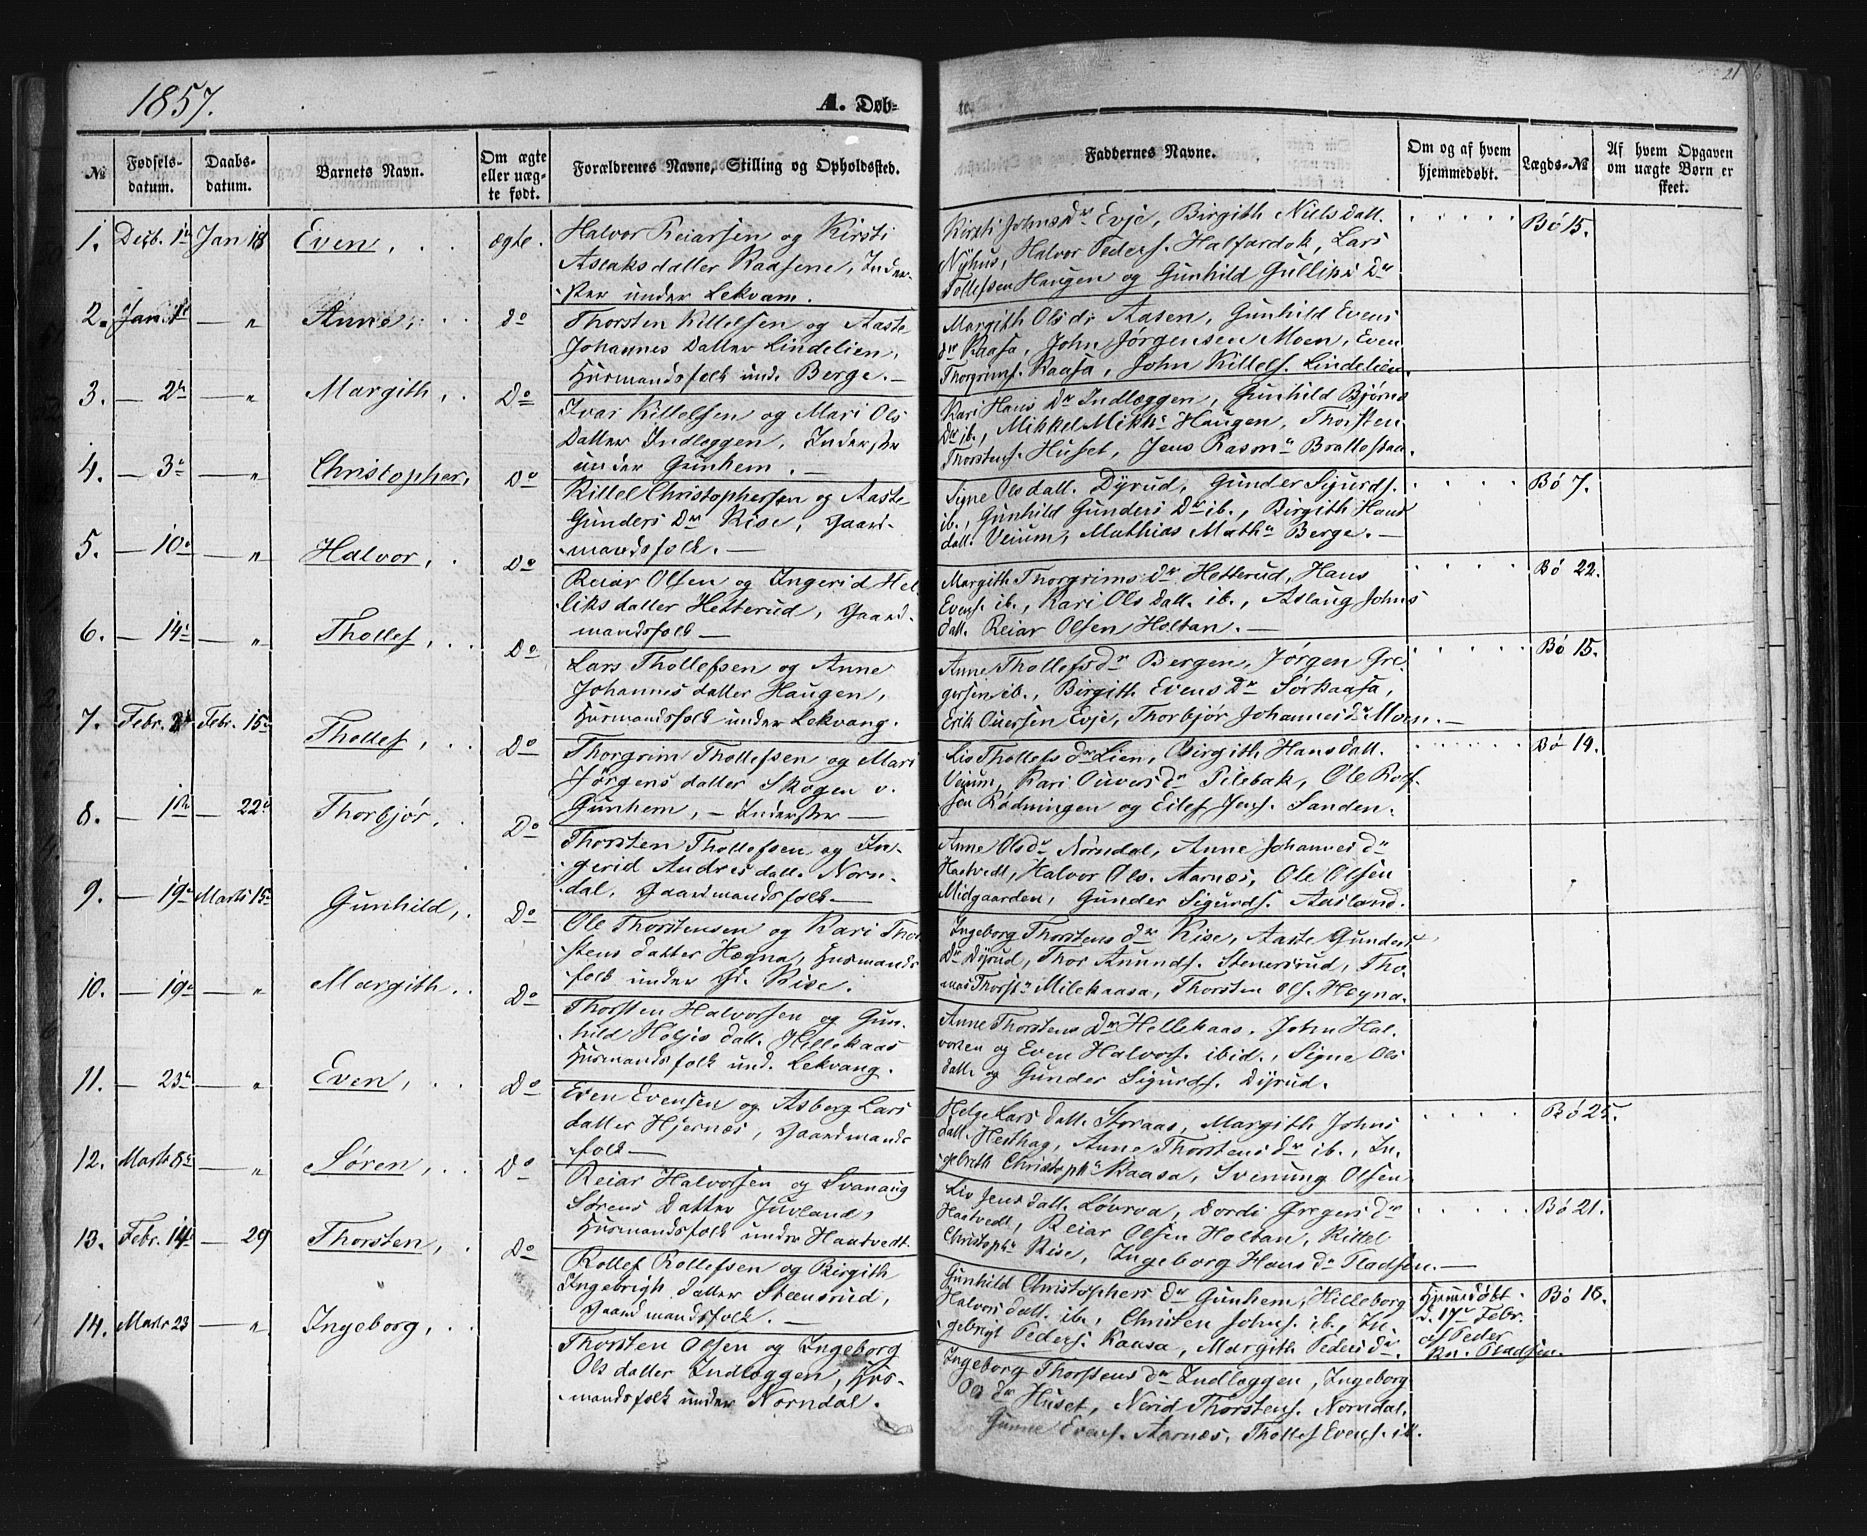 1857.
A. Døb-
te.
21
№
Fødsels-
datum.
Daabs-
datum.
Barnets Navn.
Om ægte
eller uæg-
te født.
Forældrenes Navne, Stilling og Opholdssted.
Faddernes Navne.
Om og af hvem
hjemmedøbt.
Lægds-№
Af hvem Opgaven
om uægte Børn er
skeet.
1. Decb. Jan 18 Even, ægte.
Halvor Reiarsen og Kirsti
Aslaksdatter Raasene, Inder-
ster under Lekvam.
Kirsti Johnsdr Evje, Birgith Nielsdatt.
Nyhus, Halvor Peders. Halfardok, Lars
Tollefsen Haugen og Gunhild Gulliks Dr
Bø 15.
2. Jan. — „ Anne, do
Thorsten Kittelsen og Aaste
Johannes Datter Lindelien,
Husmandsfolk und. Berge. —
Margith Olsdr Aasen, Gunhild Evens
dr Raasa, John Jørgensen Moen, Even
Thorgrims. Raasa, John Kittels. Lindelien.
3. — 2n — „ Margith, Do
Ivar Kittelsen og Mari Ols
Datter Indlæggen, Inderster
under Gunhem. —
Kari Hans Dr Indlæggen, Gunhild Bjørns
Dr ib., Mikkel Mikks Haugen, Thorsten
Thorstens. Huset, Jens Rasmn
4. — 3e — „ Christopher, Do
Kittel Christophersen og Aaste
Gunders Dr Rise, Gaard-
mandsfolk. —
Signe Olsdatt. Dyrud, Gunder Sigurds.
ib., Gunhild Gunders Dr ib., Birgith Hans
datt. Veium, Mathias Mathn Berge. —
Bø 7.
5. — 10e — „ Halvor, Do
Reiar Olsen og Ingerid Hel-
liksdatter Hetterud, Gaard-
mandsfolk —
Margith Thorgrims dr Hetterud, Hans
Evens. ib., Kari Olsdatt. ib., Aslaug Johns
datt. Reiar Olsen Holtan. —
Bø 22.
6. — 14e — „ Thollef, Do
Lars Thollefsen og Anne
Johannesdatter Haugen,
Husmandsfolk under Lekvang.
Anne Thollefsdr Bergen, Jørgen Gre-
gersen ib., Birgith Evens Dr Sørkaasa,
Erik Oversen Evje, Thorbjør Johannesdr Moen. —
Bø 15.
7. Febr. Febr. 15de Thollef, Do
Thorgrim Thollefsen og Mari
Jørgensdatter Skogen u.
Gunhem, — Inderster —
Liv Thollefs dr Lien, Birgith Hansdatt.
Veium, Kari Ouvers dr Pilebak, Ole Rolf-
sen Rødningen og Eilef Jens. Sanden.
Bø 14.
8. — — 22de Thorbjør, Do
Thorsten Thollefsen og In-
gerid Andresdatt. Norn-
dal, Gaardmandsfolk —
Anne Olsdr Nørndal, Anne Johannesdr
Haatvedt, Halvor Ols. Aarnæs, Ole Olsen
Midgaarden, Gunder Sigurds. Aasland.
9. — 19de Marts 15de Gunhild, Do
Ole Thorstensen og Kari Thor-
stens datter Hægna, Husmands
folk under Gr. Rise.
Ingeborg Thorstens dr Rise, Aaste Gunders
Dr Dyrud, Thor Amunds. Stenersrud, Tho-
mas Thorstn Milekaasa, Thorsten Ols. Hægna.
10. — 19de — „ Margith. Do
Thorsten Halvorsen og Gun-
hild Holjes datt. Hellekaas
Husmandsfolk und. Lekvang.
Anne Thorstens Dr Hellekaas, John Hal-
vorsen og Even Halvors. ibid., Signe Ols
datt. og Gunder Sigurds. Dyrud.
11. — 23de — „ Even, Do
Even Evensen og Asberg Lars
datter Hjernæs, Gaardmands
folk —
Helge Lars datt. Storaas, Margith Johns
datt. Hesthag, Anne Thorstensdr ib., In-
gebreth Christophs Raasa, Svenung Olsen
Bø 25.
12. Marts 8de — „ Søren, Do
Reiar Halvorsen og Svanaug
Sørens Datter Juvland,
Husmandsfolk under Haatvedt.
Liv Jens datt. Løvrva, Dordi Gregers dr
Haatvedt, Reiar Olsen Holtan, Kittel
Christophs Rise, Ingeborg Hans dr Pladsen. —
Bø 21.
13. Febr. 14de — 29 Thorsten, Do
Rollef Rollefsen og Birgith
Ingebrigh datter Steensrud,
Gaardmandsfolk. —
Gunhild Christophers dr Gunhem, Hilleborg
Halvors datt. ib., Christen Johns. ib., In-
gebrigt Peders. Kaasa, Margith Pedersdr.
Hjemmedøbt
d. 17e Febr.
af Peder
Kn. Pladsen
Bø 18.
14. Marts 23 — „ Ingeborg,
Thorsten Olsen og Ingeborg
Olsdatter Indlæggen, Hus-
mandsfolk under Norndal.
Ingeborg Thorstens dr Indlæggen, Ingeborg
Ols dr Huset, Nerid Thorstens. Norndal,
Gunne Evens. Aarnæs, Thollef Evens. ib.